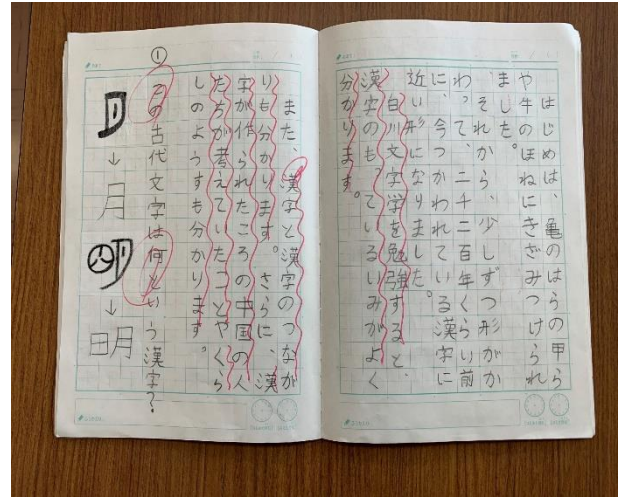 はじめは、亀のはらの甲ら
や牛のほねにきざみつけられ
ました。
それから、少しずつ形がか
わって、二千二百年くらい前
に、今つかわれている漢字に
近い形になりました。
白川文字学を勉強すると、
漢字のもっているいみがよく
分かります。
また、漢字と漢字のつなが
りも分かります。さらに、漢
字が作られたころの中国の人
たちが考えていたことやくら
しのようすも分かります。
①
下の古代文字は何という漢字？
↓
月
↓
明